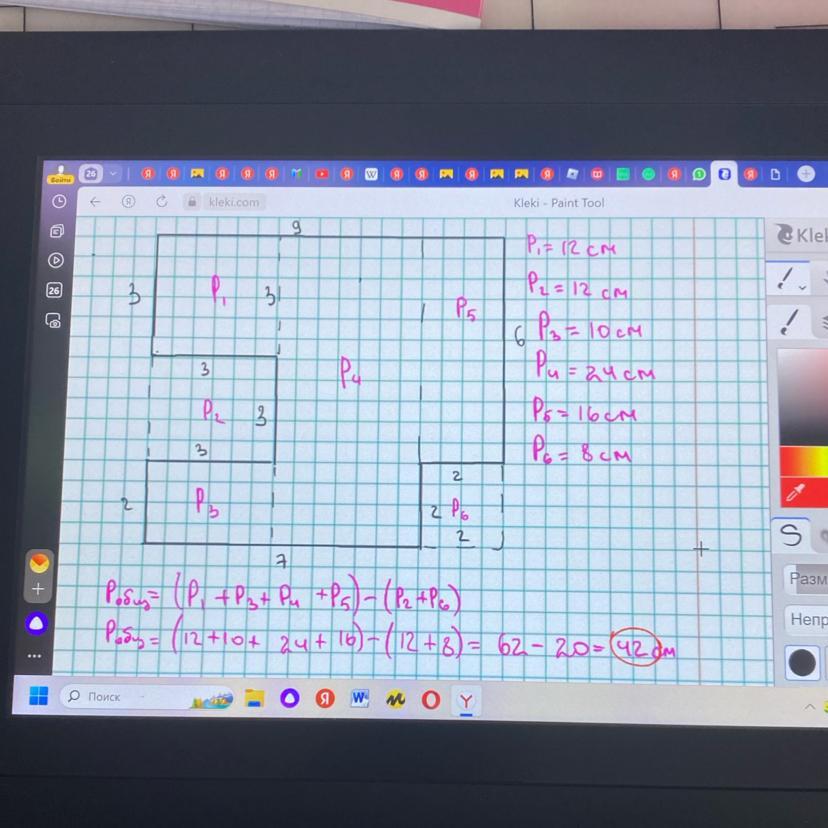 Войти
26
kleki.com
Kleki - Paint Tool
Klek
26
9
3
P₁
3
P₅
6
3
P₄
P₂
3
3
2
P₃
2
2
P₆
2
7
P₁ = 12 см
P₂ = 12 см
P₃ = 10 см
P₄ = 24 см
P₅ = 16 см
P₆ = 8 см
S
Разм
Непр
Pобщ = (P₁ + P₃ + P₄ + P₅) - (P₂ + P₆)
Pобщ = (12 + 10 + 24 + 16) - (12 + 8) = 62 - 20 = 42 см
Поиск